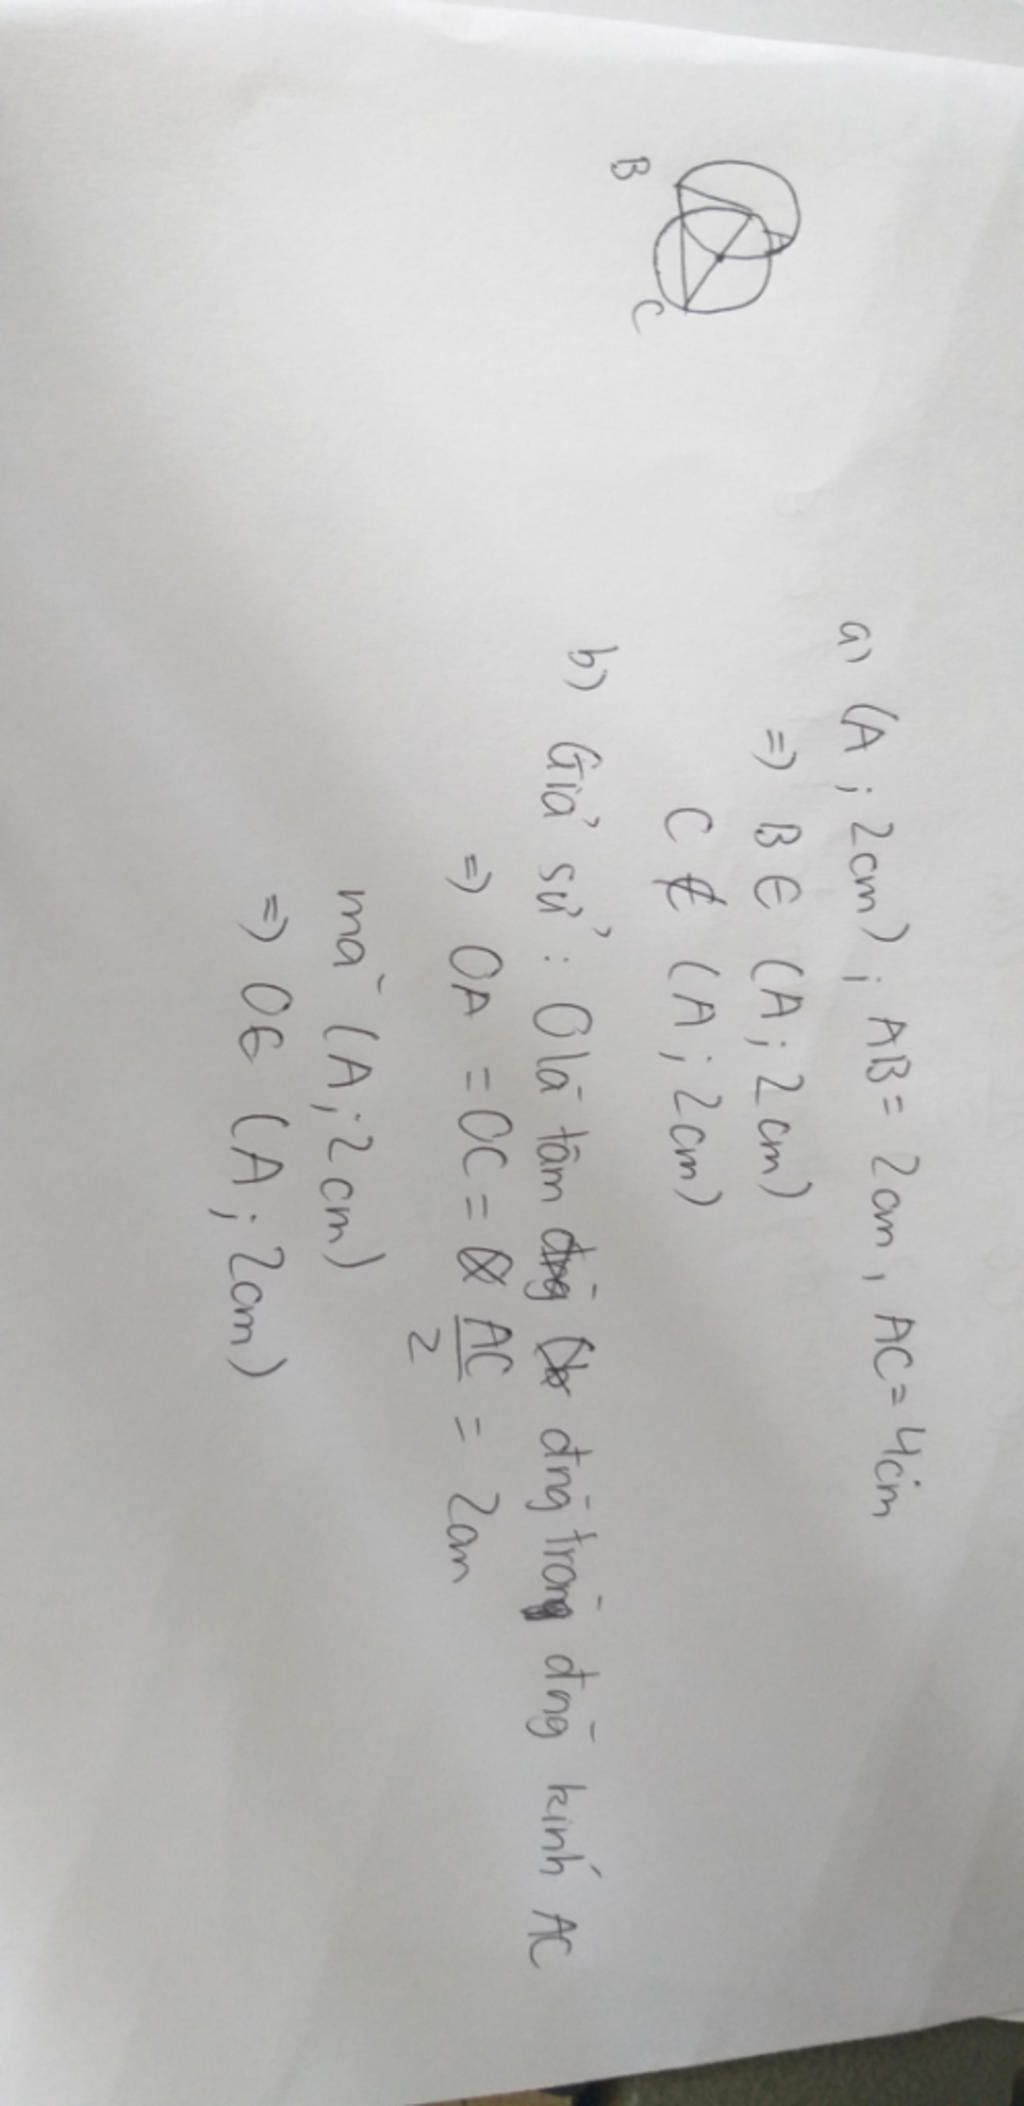 B
A
C
a) (A; 2cm); AB = 2cm, AC = 4cm
=> B ∈ (A; 2cm)
C ∉ (A; 2cm)
b) Giả sử: O là tâm đng̀ tròn đng̀ kính AC
=> OA = OC = AC/2 = 2cm
mà (A; 2cm)
=> O ∈ (A; 2cm)